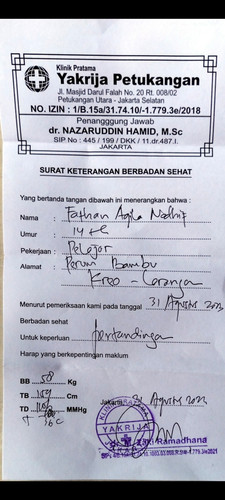 Klinik Pratama
Yakrija Petukangan
Jl. Masjid Darul Falah No. 20 Rt. 008/02
Petukangan Utara - Jakarta Selatan
NO. IZIN : 1/B.15a/31.74.10/-1.779.3e/2018
Penangggung Jawab
dr. NAZARUDDIN HAMID, M.Sc
SIP No : 445 / 199 / DKK / 11.dr.487.I.
JAKARTA
SURAT KETERANGAN BERBADAN SEHAT
Yang bertanda tangan dibawah ini menerangkan bahwa :
Nama : Fathan Aqila
Umur : 14 th
Pekerjaan : Pelajar
Alamat : Perum Bambu
Kreo - Larangan
Menurut pemeriksaan kami pada tanggal 31 Agustus
Berbadan sehat
Untuk keperluan : pertandingan
Harap yang berkepentingan maklum
BB : 58 Kg
TB : 159 Cm
TD : MMHg
Jakarta, 31 Agustus
KLINIK PRATAMA
YAKRIJA
Ramadhana